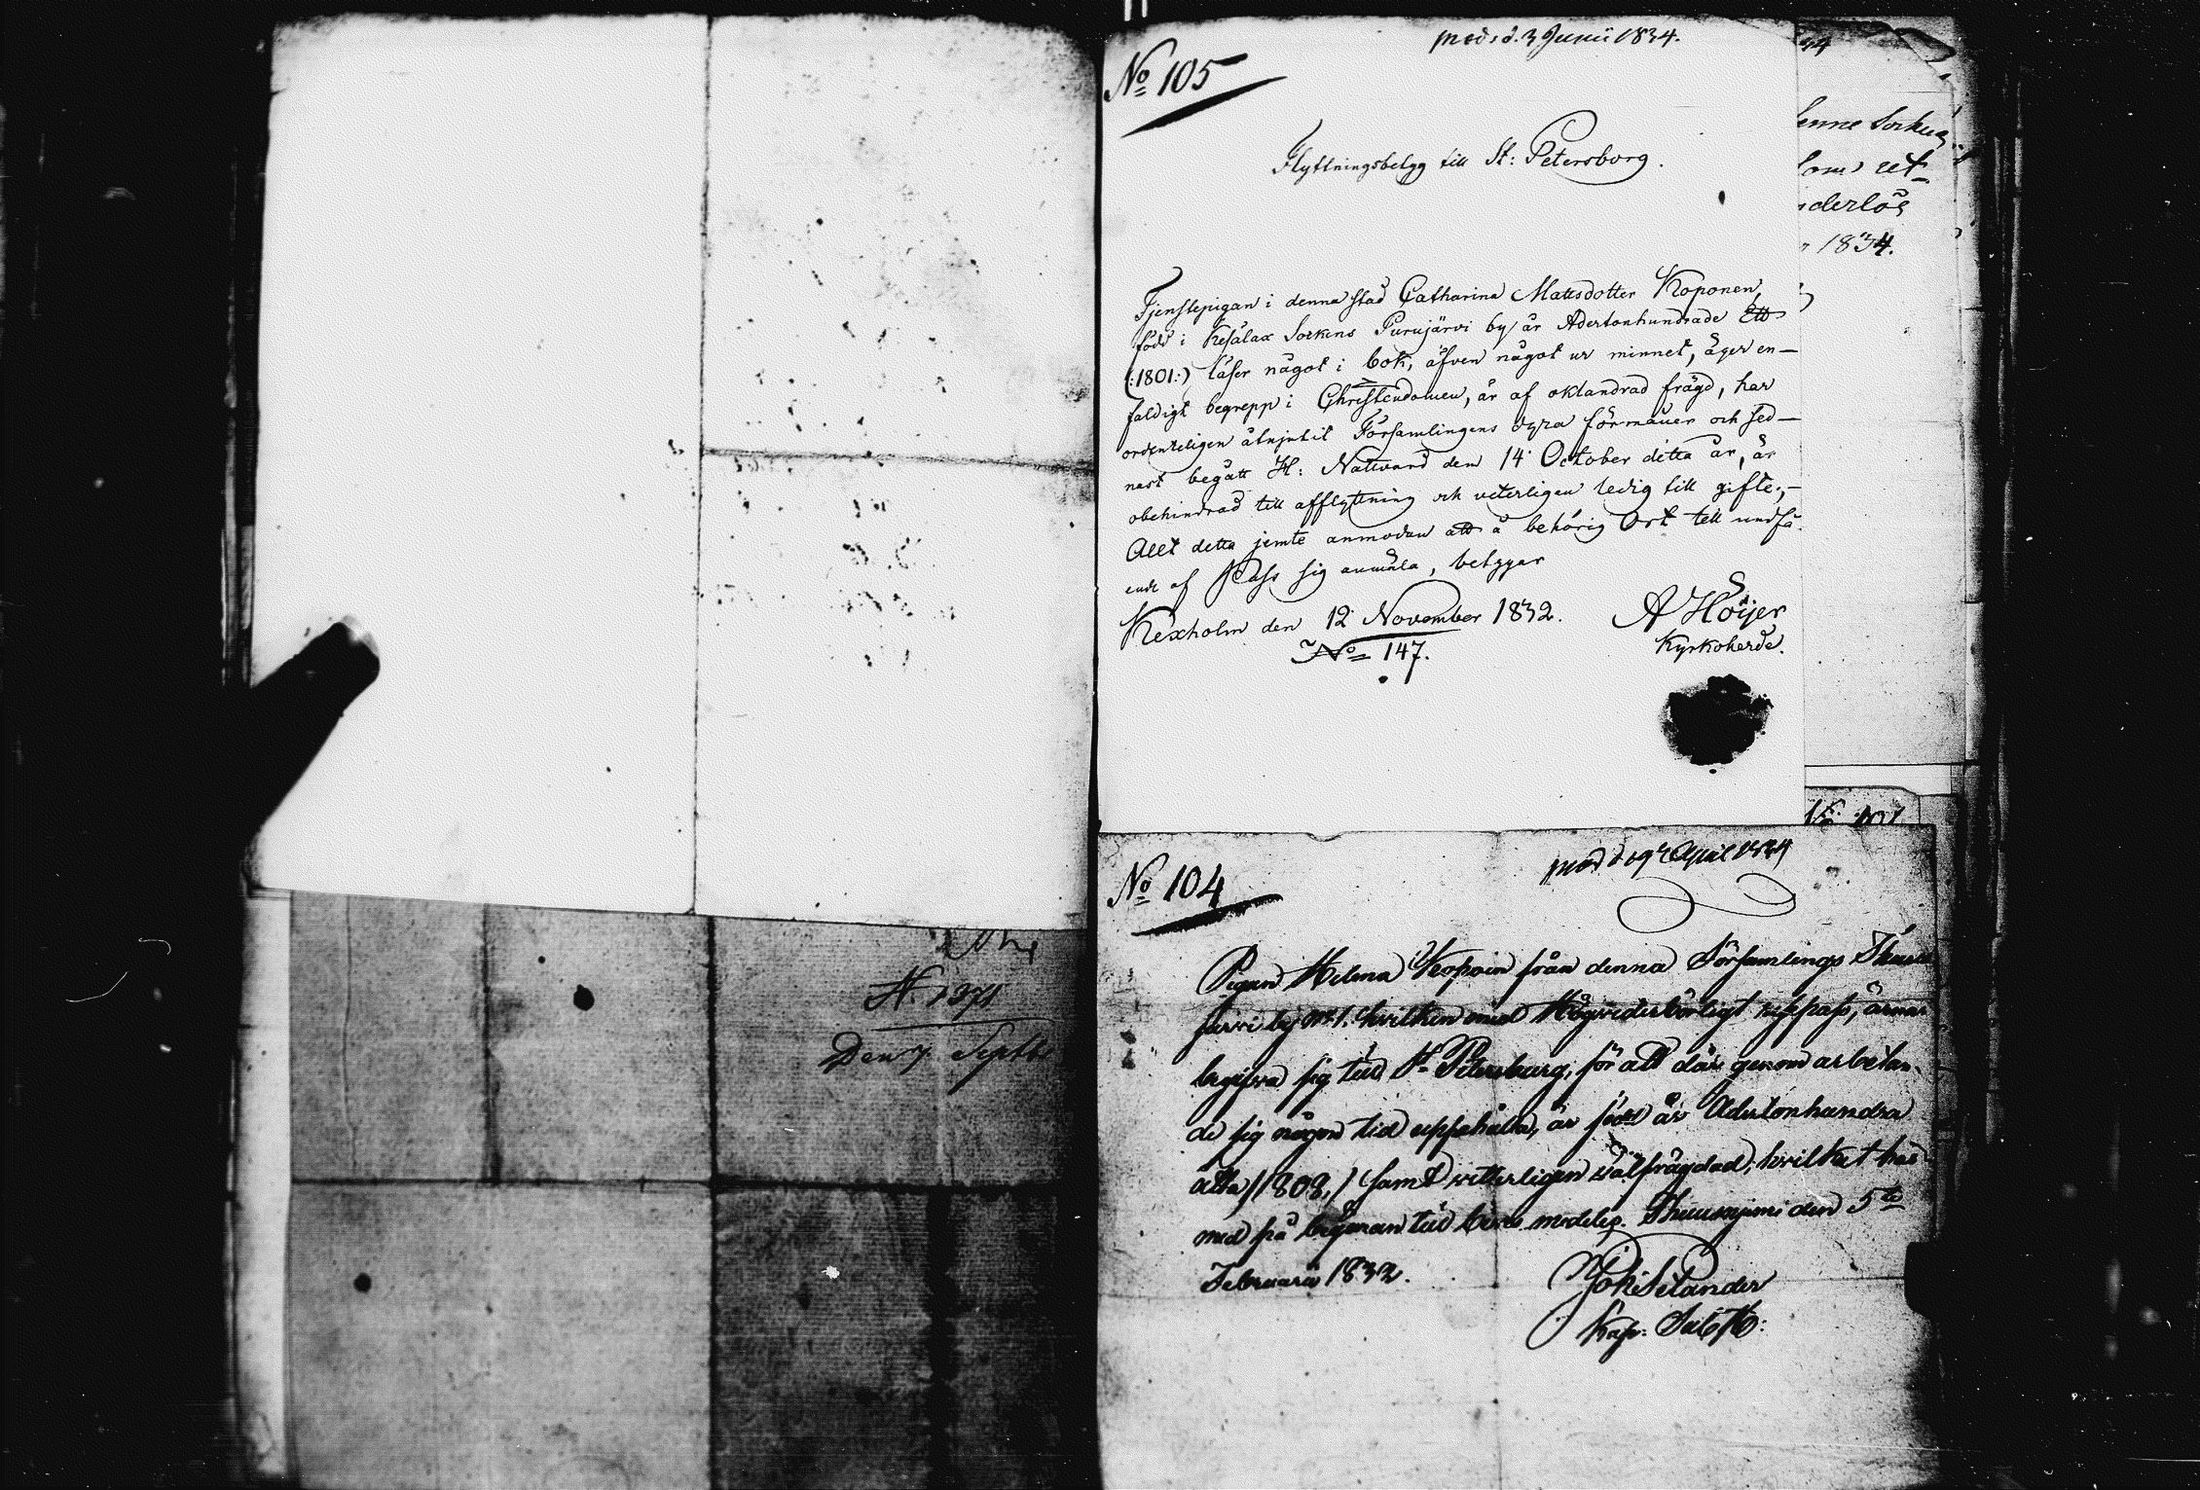 N:o 1371
Den 7 Septbr
med. d. 3 Junii 1834.
No 105
Flyttningsbetyg till St: Petersborg.
Tjenstepigan i denna stad Catharina Mattsdotter Koponen,
född i Kesälax Sockens Purujärvi by år Adertonhundrade Ett
(:1801:) läser något i bok, äfven något ur minnet, äger en-
faldigt begrepp i Christendomen, är af oklandrad frägd, har
ordenteligen åtnjutit Församlingens dyra förmåner och sed-
nast begått H: Nattvard den 14 October detta år, är
obehindrad till afflyttning och veterligen ledig till gifte;-
Allt detta jemte anmodan att å behörig Ort till undfå-
ende af Pass sig anmäla, betygar
Kexholm den 12 November 1832.
A Höijer
Kyrkoherde.
No 147.
enne Socken
som ut-
derlös
1834.
No 104
med d 19 April 1834
Pigan Helena Koponen från denna Församlings
järvi by No 1. hvilken med Högvederbörligt respass, ärnar
begifva sig till St Petersburg, för att där genom arbetan-
de sig någon tid uppehålla, är född år Adertonhundra
åtta /1808,/ samt vitterligen välfrägdad, hvilket här
med på begäran till bevis meddelas. den 5te
Februarii 1832.
Joh: Selander
Kap: